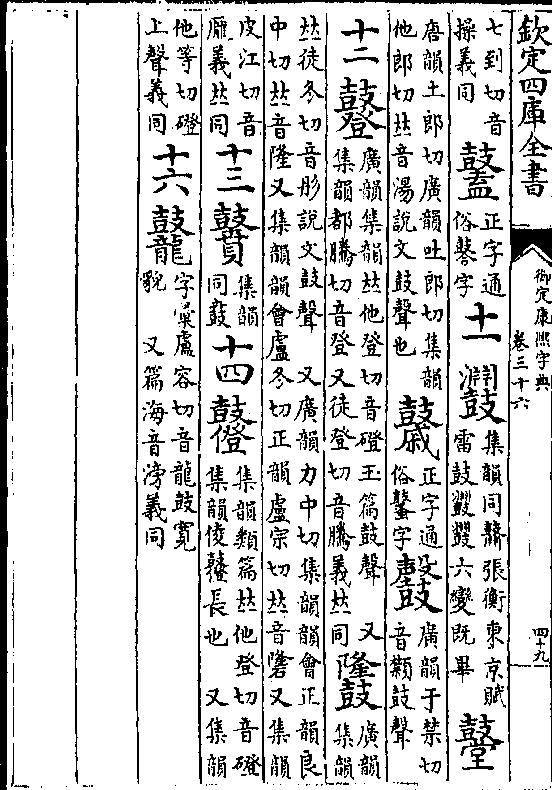 欽定四庫全書
御定康熙字典
卷三十六
四十九
七到切音操義同
正字通俗鼛字
十一
集韻同鼝張衡東京賦雷鼓鼝鼝六變既畢
鼞
唐韻土郎切廣韻吐郎切集韻他郎切𠀤音湯說文鼓聲也
正字通俗鼜字
廣韻于禁切音顙鼓聲
十二
鼟
廣韻集韻𠀤他登切音磴玉篇鼓聲 又集韻都騰切音登又徒登切音騰義𠀤同
廣韻集韻𠀤徒冬切音彤說文鼓聲 又廣韻力中切集韻韻會正韻良中切𠀤音隆又集韻韻會盧冬切正韻盧宗切𠀤音礱又集韻皮江切音龎義𠀤同
十三
鼖
集韻同鼓
十四
集韻類篇𠀤他登切音磴集韻倰鼞長也 又集韻他等切磴上聲義同
十六
字彙盧容切音龍鼓寬貌 又篇海音滂義同